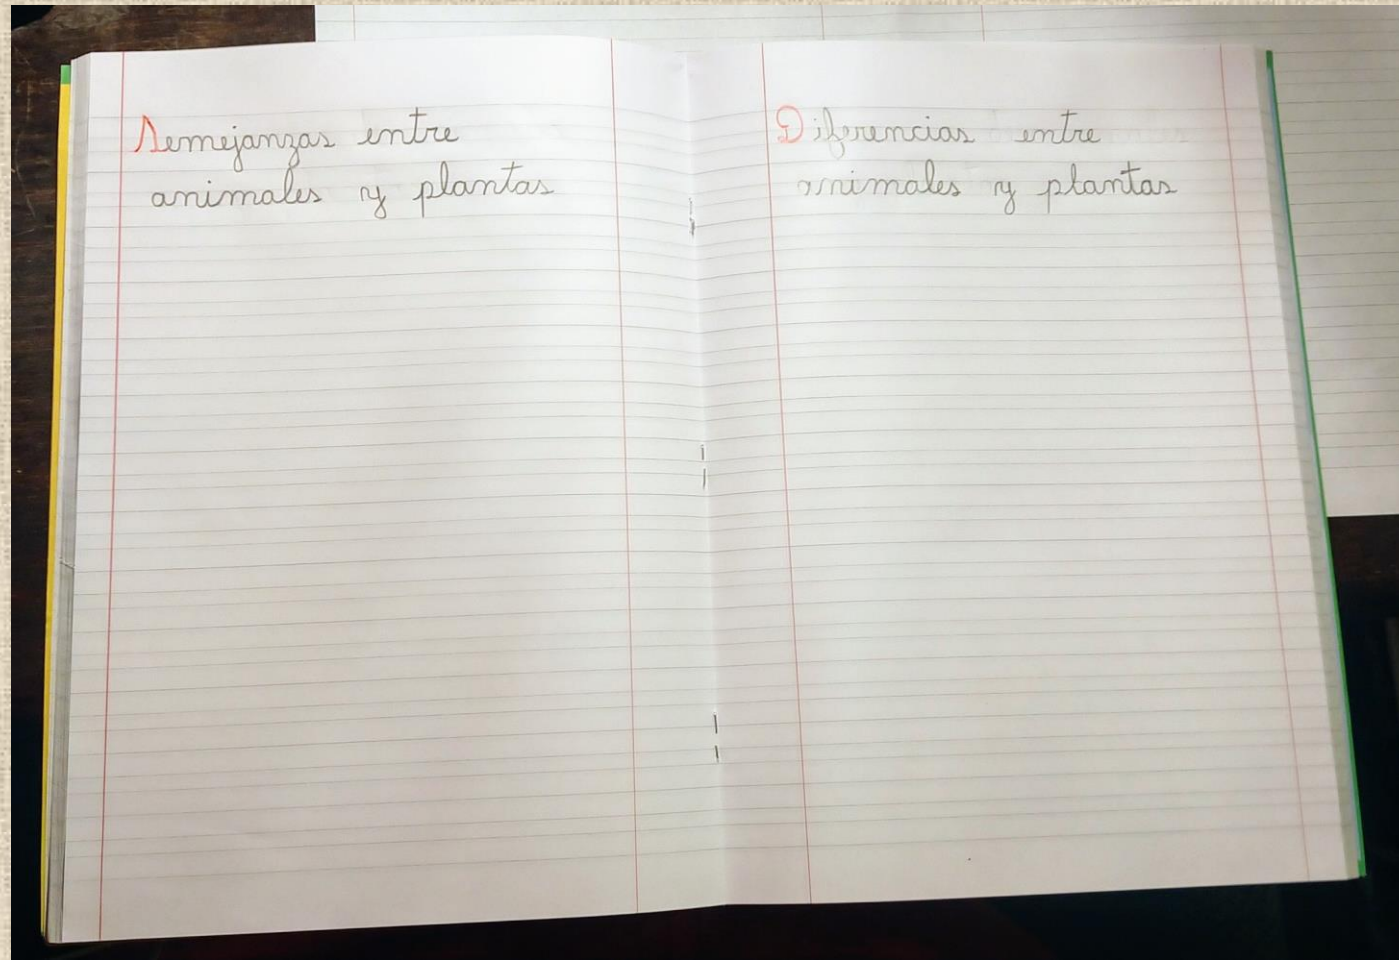 Semejanzas entre
animales y plantas
Diferencias entre
animales y plantas